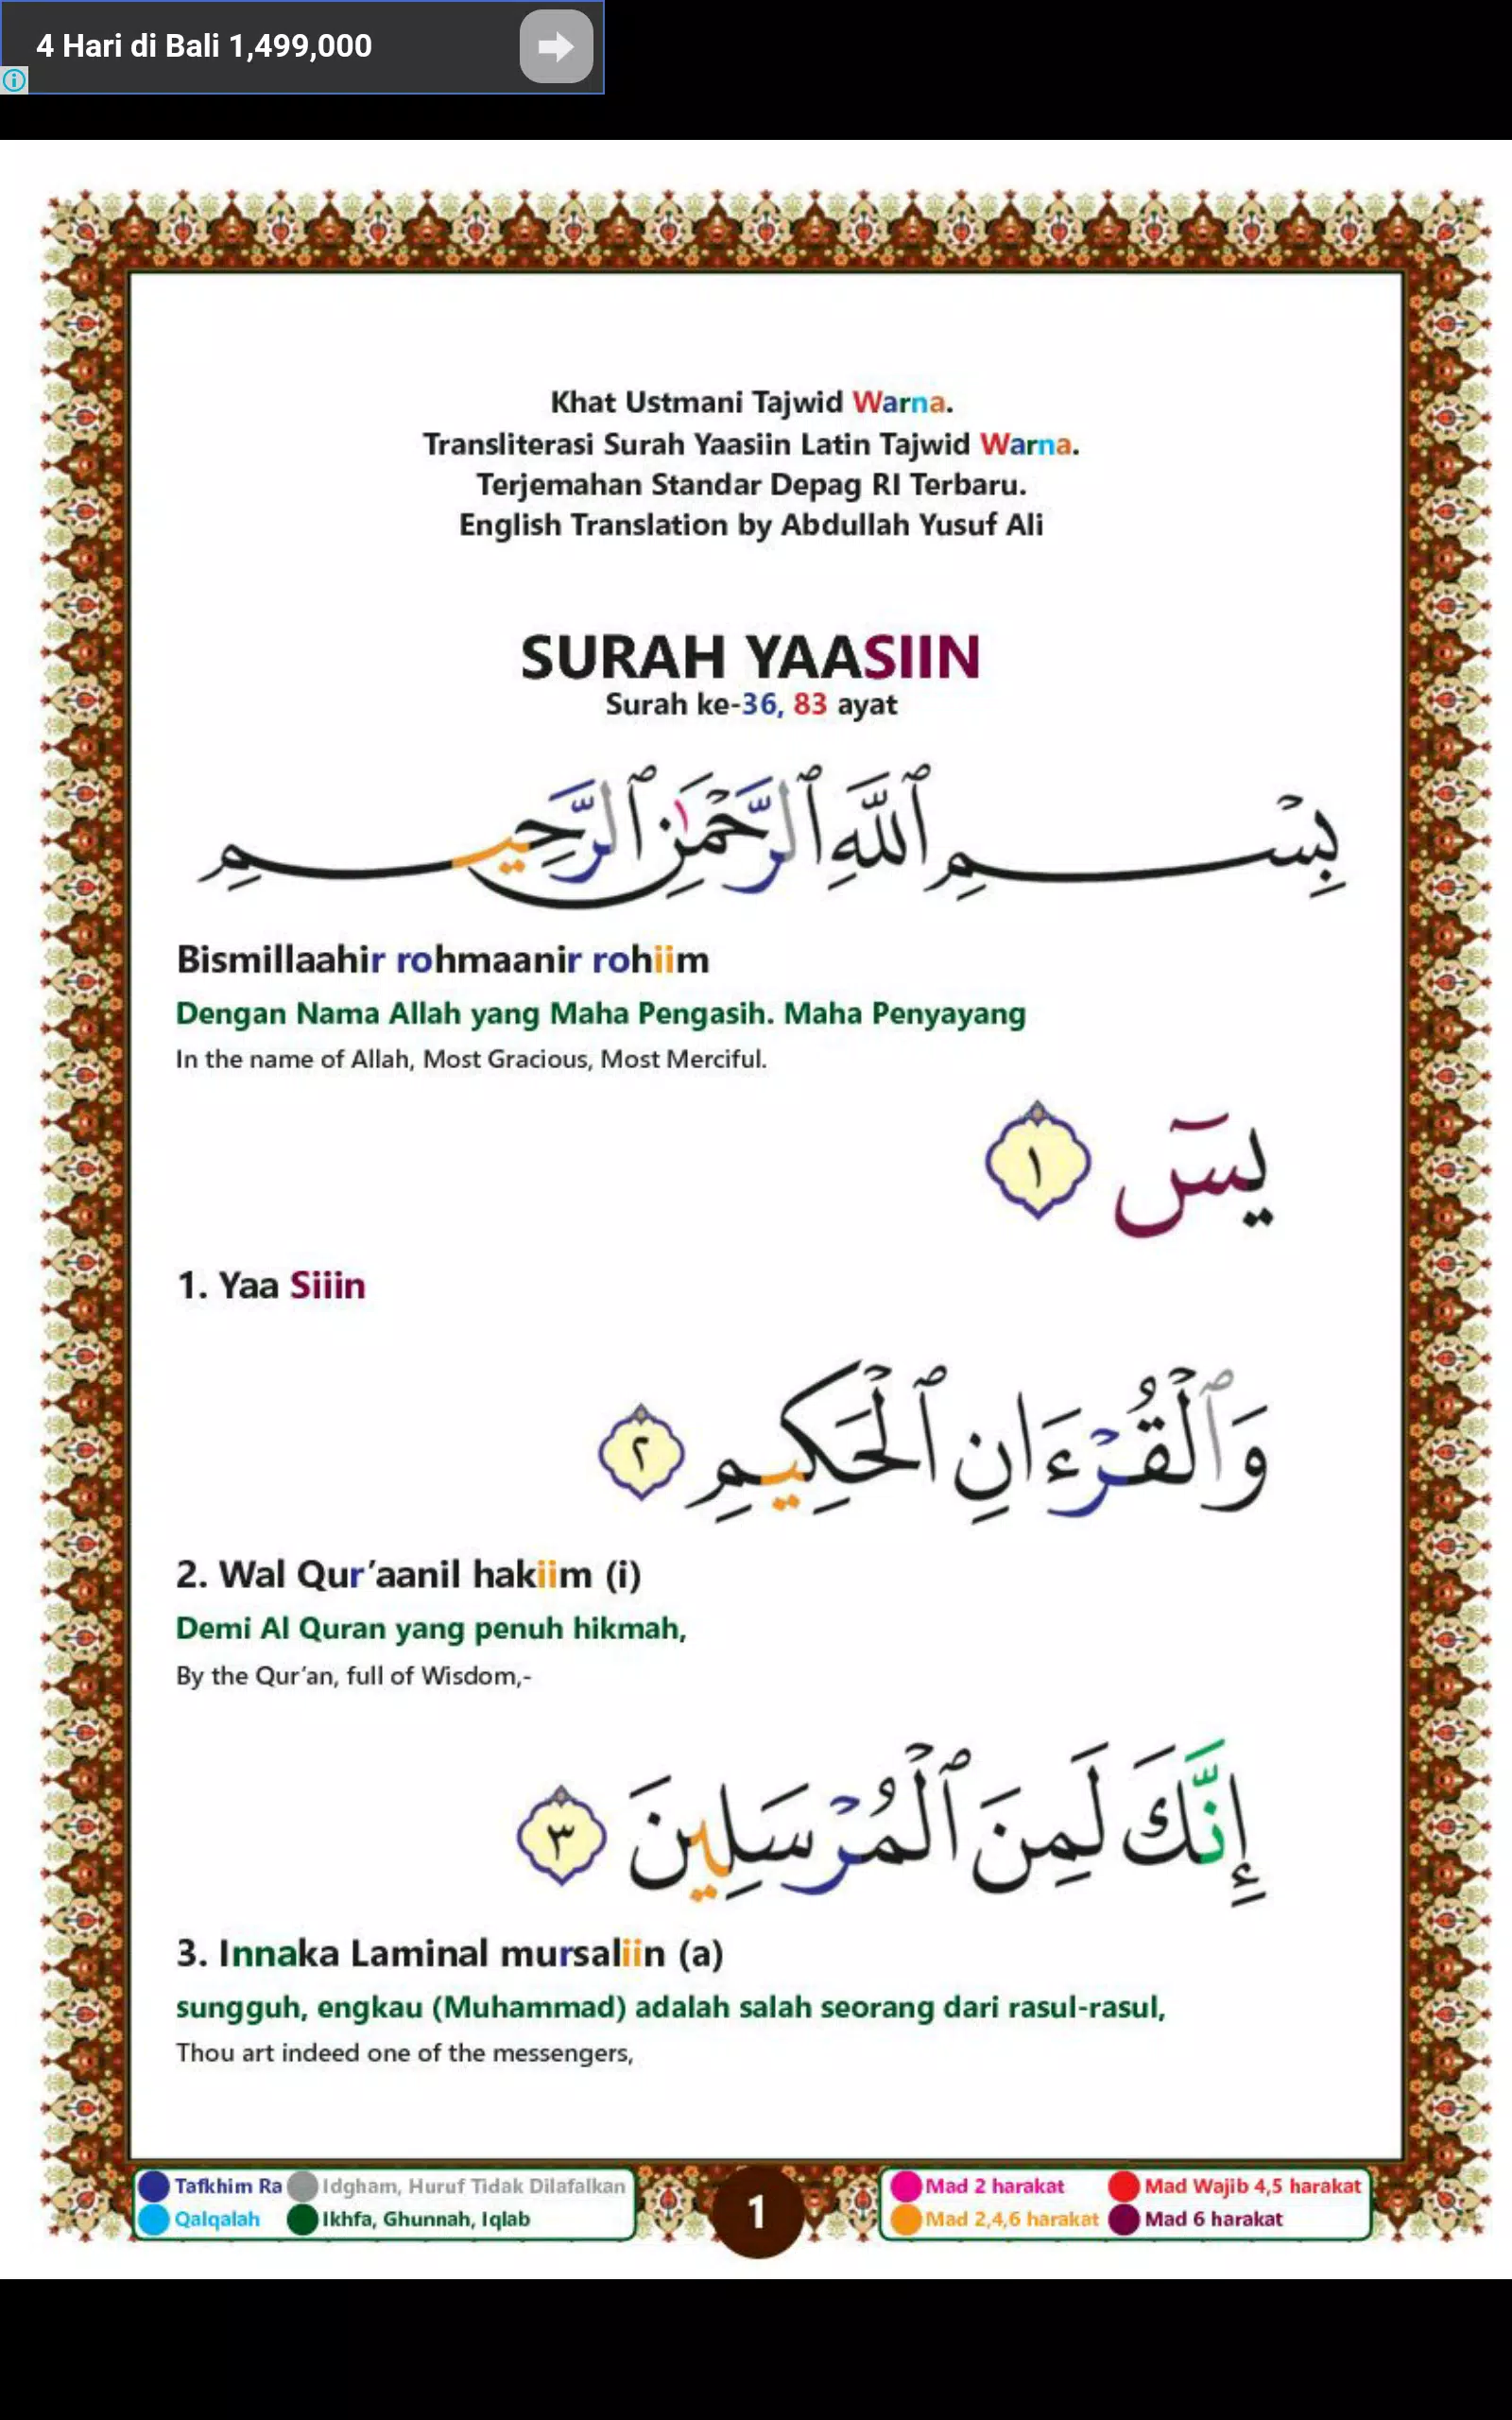 4 Hari di Bali 1,499,000
Khat Ustmani Tajwid Warna.
Transliterasi Surah Yaasiin Latin Tajwid Warna.
Terjemahan Standar Depag RI Terbaru.
English Translation by Abdullah Yusuf Ali
SURAH YAASIIN
Surah ke-36, 83 ayat
بِسْمِ ٱللَّهِ ٱلرَّحْمَٰنِ ٱلرَّحِيمِ
Bismillaahir rohmaanir rohiim
Dengan Nama Allah yang Maha Pengasih. Maha Penyayang
In the name of Allah, Most Gracious, Most Merciful.
يسٓ ١
1. Yaa Siiin
وَٱلْقُرْءَانِ ٱلْحَكِيمِ ٢
2. Wal Qur’aanil hakiim (i)
Demi Al Quran yang penuh hikmah,
By the Qur’an, full of Wisdom,-
إِنَّكَ لَمِنَ ٱلْمُرْسَلِينَ ٣
3. Innaka Laminal mursaliin (a)
sungguh, engkau (Muhammad) adalah salah seorang dari rasul-rasul,
Thou art indeed one of the messengers,
Tafkhim Ra Idgham, Huruf Tidak Dilafalkan
Qalqalah Ikhfa, Ghunnah, Iqlab
1
Mad 2 harakat Mad Wajib 4,5 harakat
Mad 2,4,6 harakat Mad 6 harakat